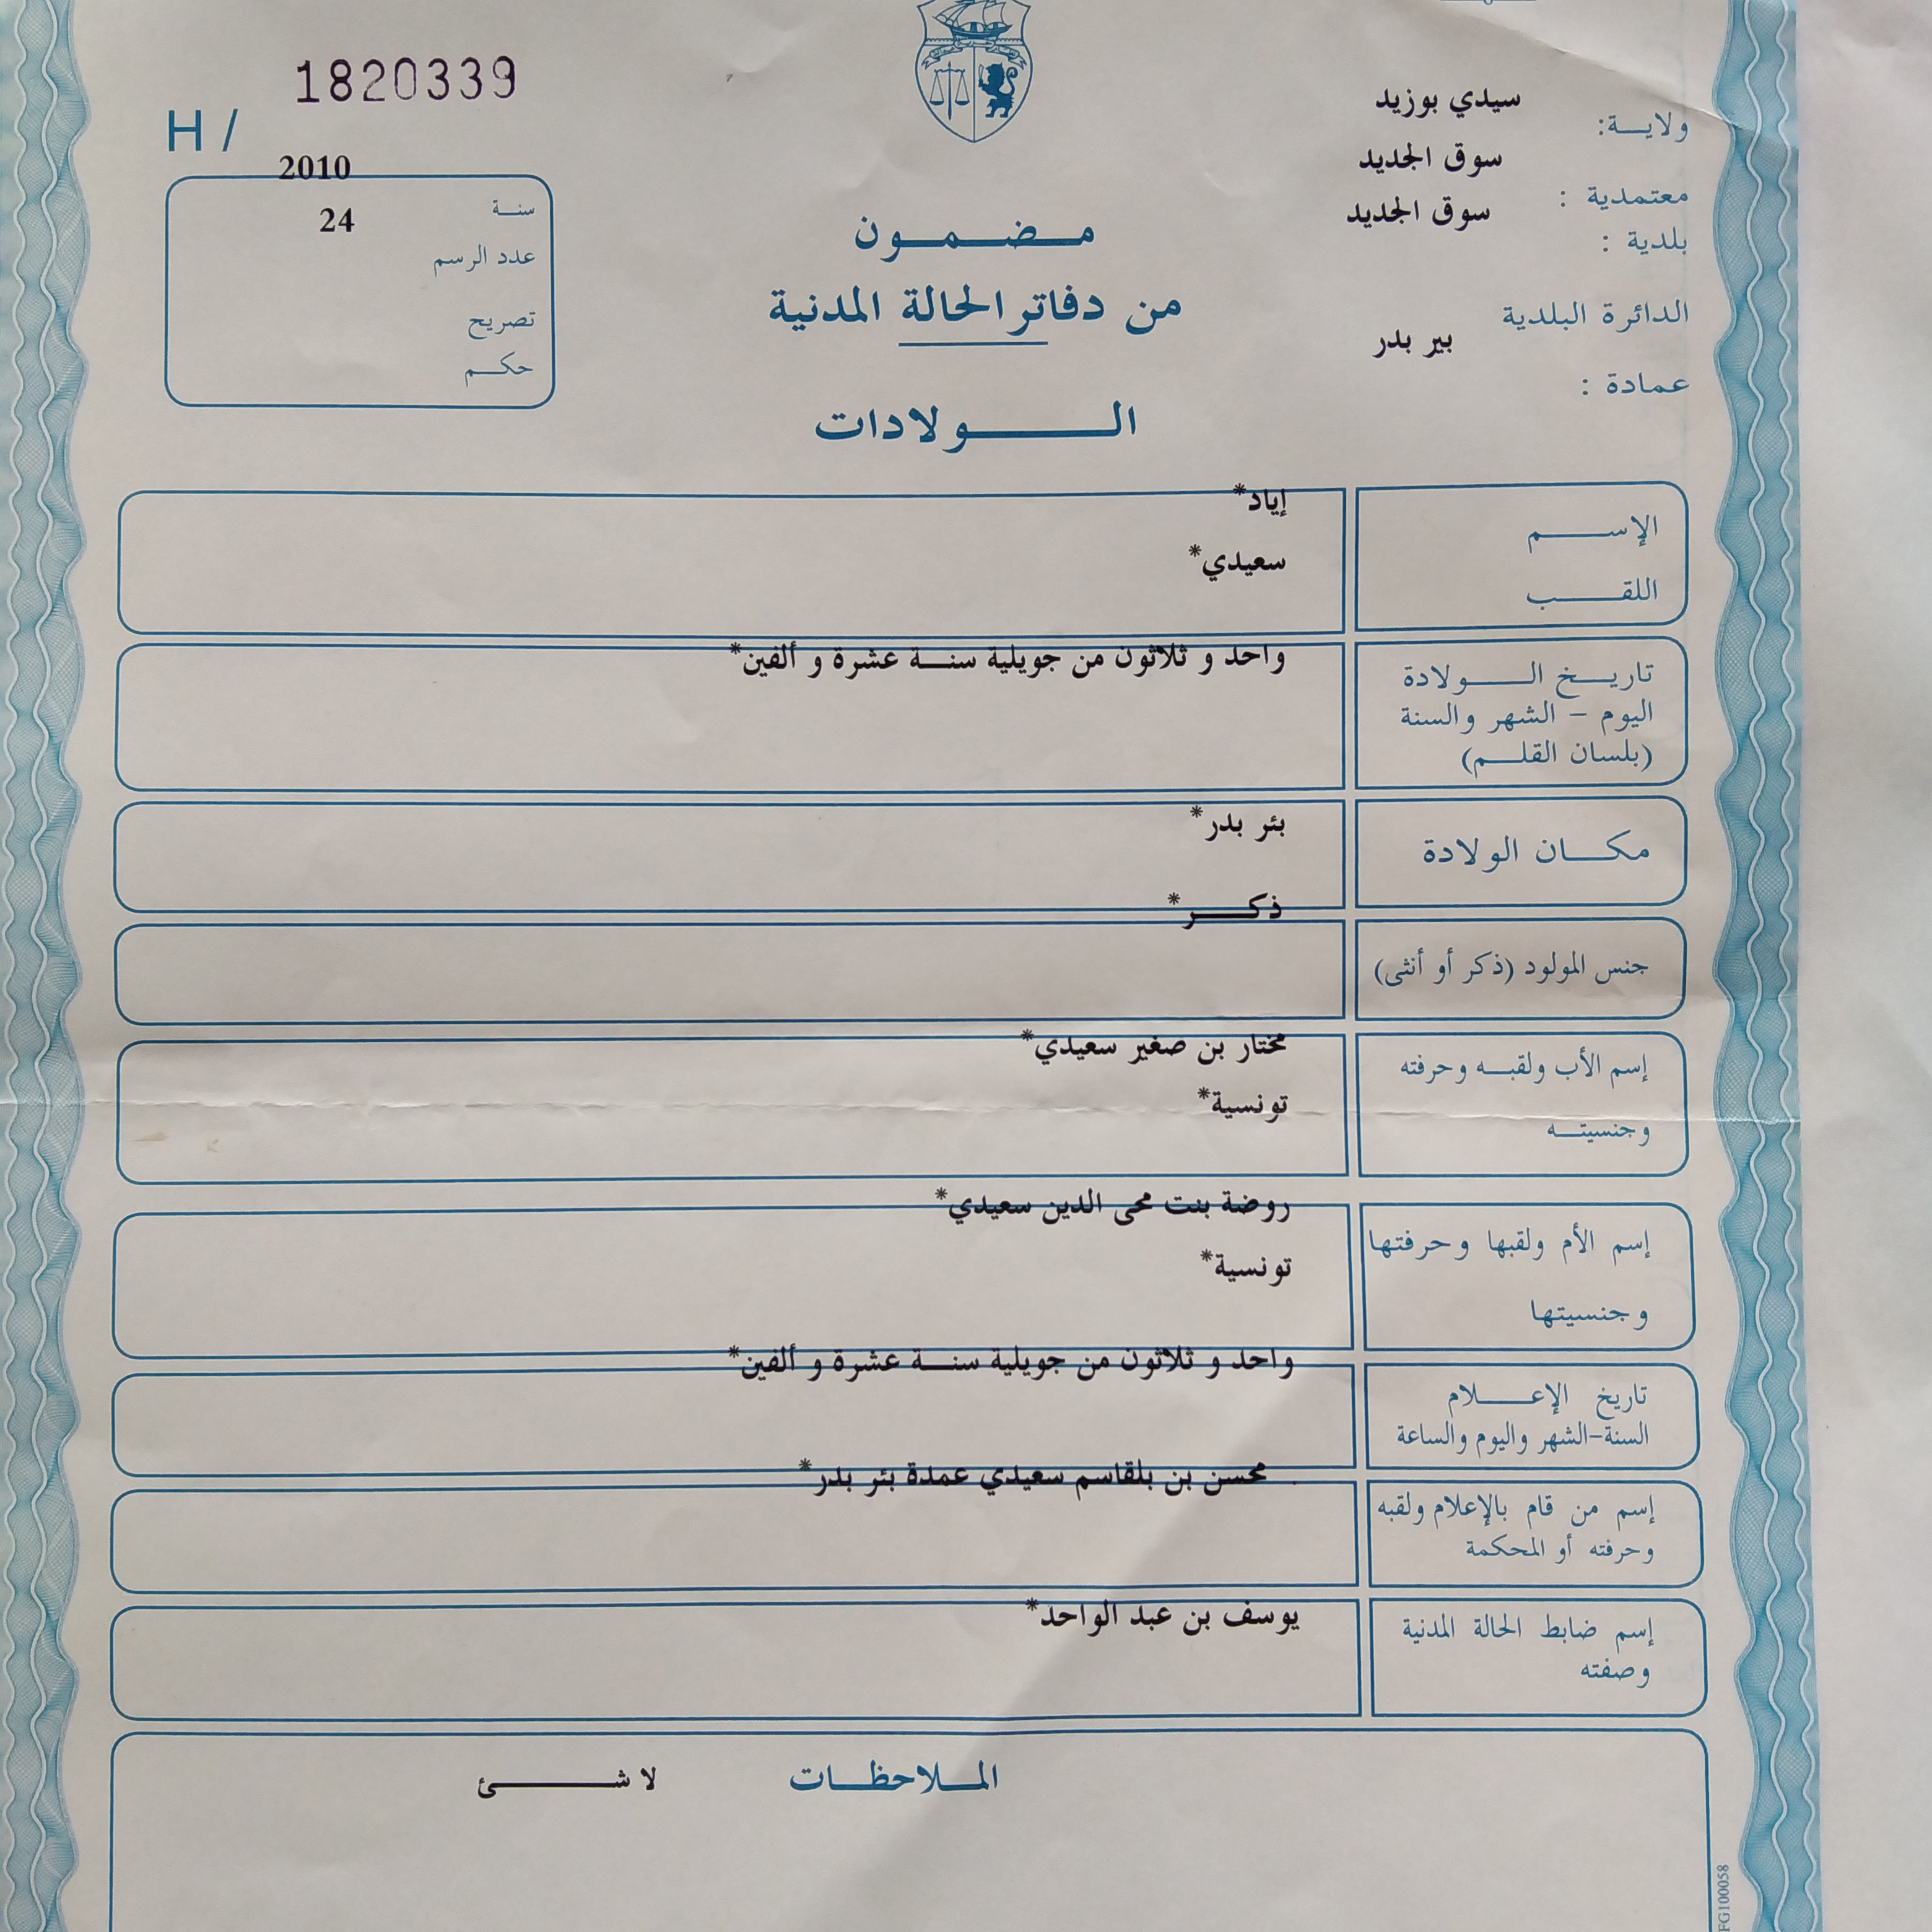 1820339
H /
سيدي بوزيد
ولاية:
سوق الجديد
معتمدية :
سوق الجديد
بلدية :
الدائرة البلدية
بير بدر
عمادة :
2010
سنة
24
عدد الرسم
تصريح
حكم
مضمون
من دفاتر الحالة المدنية
الولادات
الإسم
إياد*
اللقب
سعيدي*
تاريخ الولادة
اليوم - الشهر والسنة
(بلسان القلم)
واحد و ثلاثون من جويلية سنة عشرة و ألفين*
مكان الولادة
بئر بدر*
جنس المولود (ذكر أو أنثى)
ذكر*
إسم الأب ولقبه وحرفته
مختار بن صغير سعيدي*
وجنسيته
تونسية*
إسم الأم ولقبها وحرفتها
روضة بنت محى الدين سعيدي*
وجنسيتها
تونسية*
تاريخ الإعلام
السنة-الشهر واليوم والساعة
واحد و ثلاثون من جويلية سنة عشرة و ألفين*
إسم من قام بالإعلام ولقبه
وحرفته أو المحكمة
محسن بن بلقاسم سعيدي عمدة بئر بدر*
إسم ضابط الحالة المدنية
وصفته
يوسف بن عبد الواحد*
الملاحظات
لا شئ
FG100058